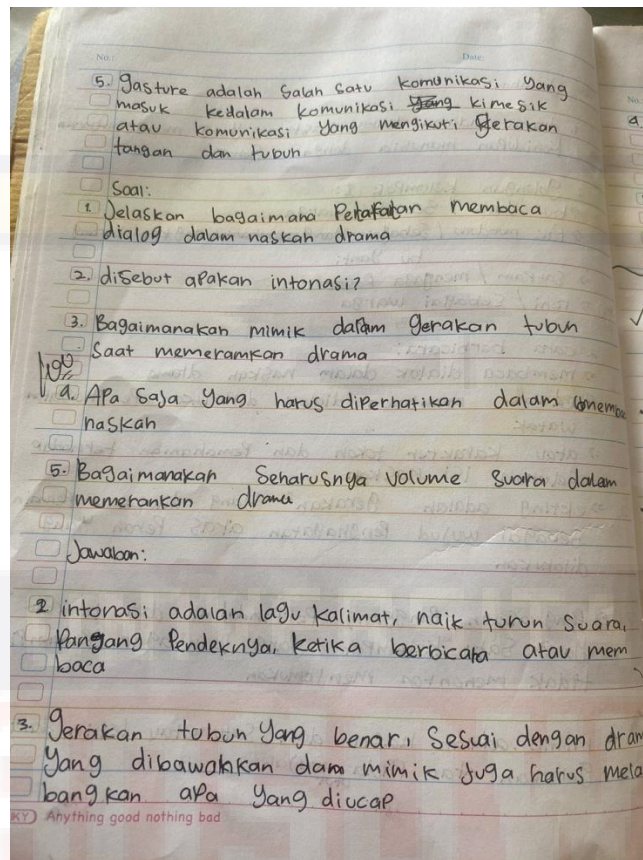 No.: Date:
5. Gasture adalah salah satu komunikasi yang
masuk kedalam komunikasi yang kimesik
atau komunikasi yang mengikuti gerakan
tangan dan tubuh
Soal:
1. Jelaskan bagaimana Pelafatan membaca
dialog dalam naskah drama
2. disebut apakan intonasi?
3. Bagaimanakan mimik dalam gerakan tubuh
Saat memeramkan drama
100
a. Apa saja yang harus diperhatikan dalam
naskah
5. Bagaimanakah Seharusnya volume suara dalam
memerankan drama
Jawaban:
2. intonasi adalah lagu kalimat, naik turun suara,
Pangang Pendeknya, ketika berbicara atau mem
baca
3. gerakan tubuh yang benar, Sesuai dengan dram
yang dibawahkan dam mimik juga harus mela
bangkan apa yang diucap
KY Anything good nothing bad